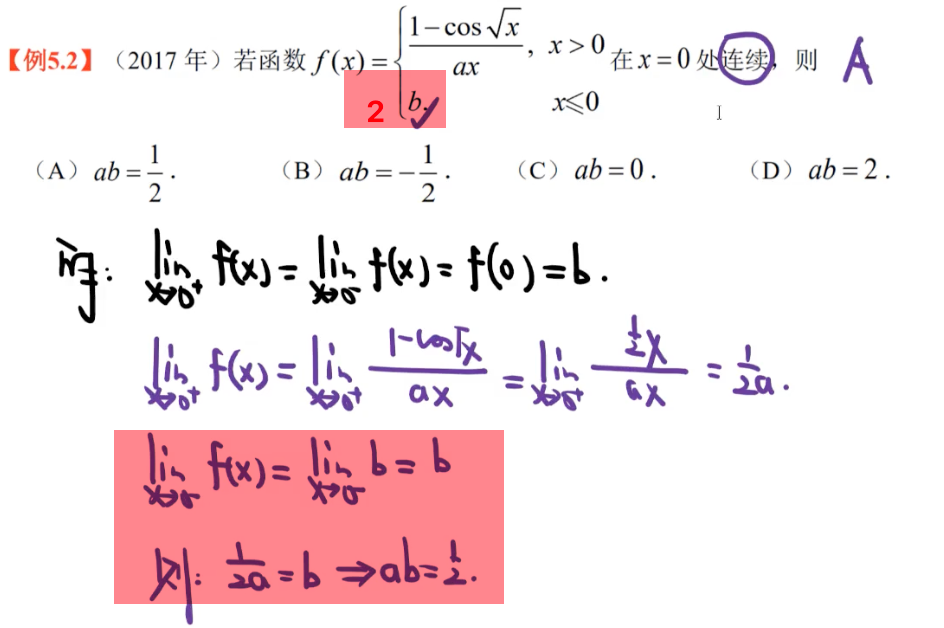 【例5.2】（2017 年）若函数 f(x) = { (1−cos√x)/(ax), x>0 在 x=0 处连续，则 A
2 b, ✓ x⩽0
（A）ab = 1/2． （B）ab = −1/2． （C）ab = 0． （D）ab = 2．
lim x→0⁺ f(x) = lim x→0⁻ f(x) = f(0) = b.
lim x→0⁺ f(x) = lim x→0⁺ (1−cos√x)/(ax) = lim x→0⁺ (½x)/(ax) = 1/(2a).
lim x→0⁻ f(x) = lim x→0⁻ b = b
则: 1/(2a) = b ⇒ ab = 1/2.